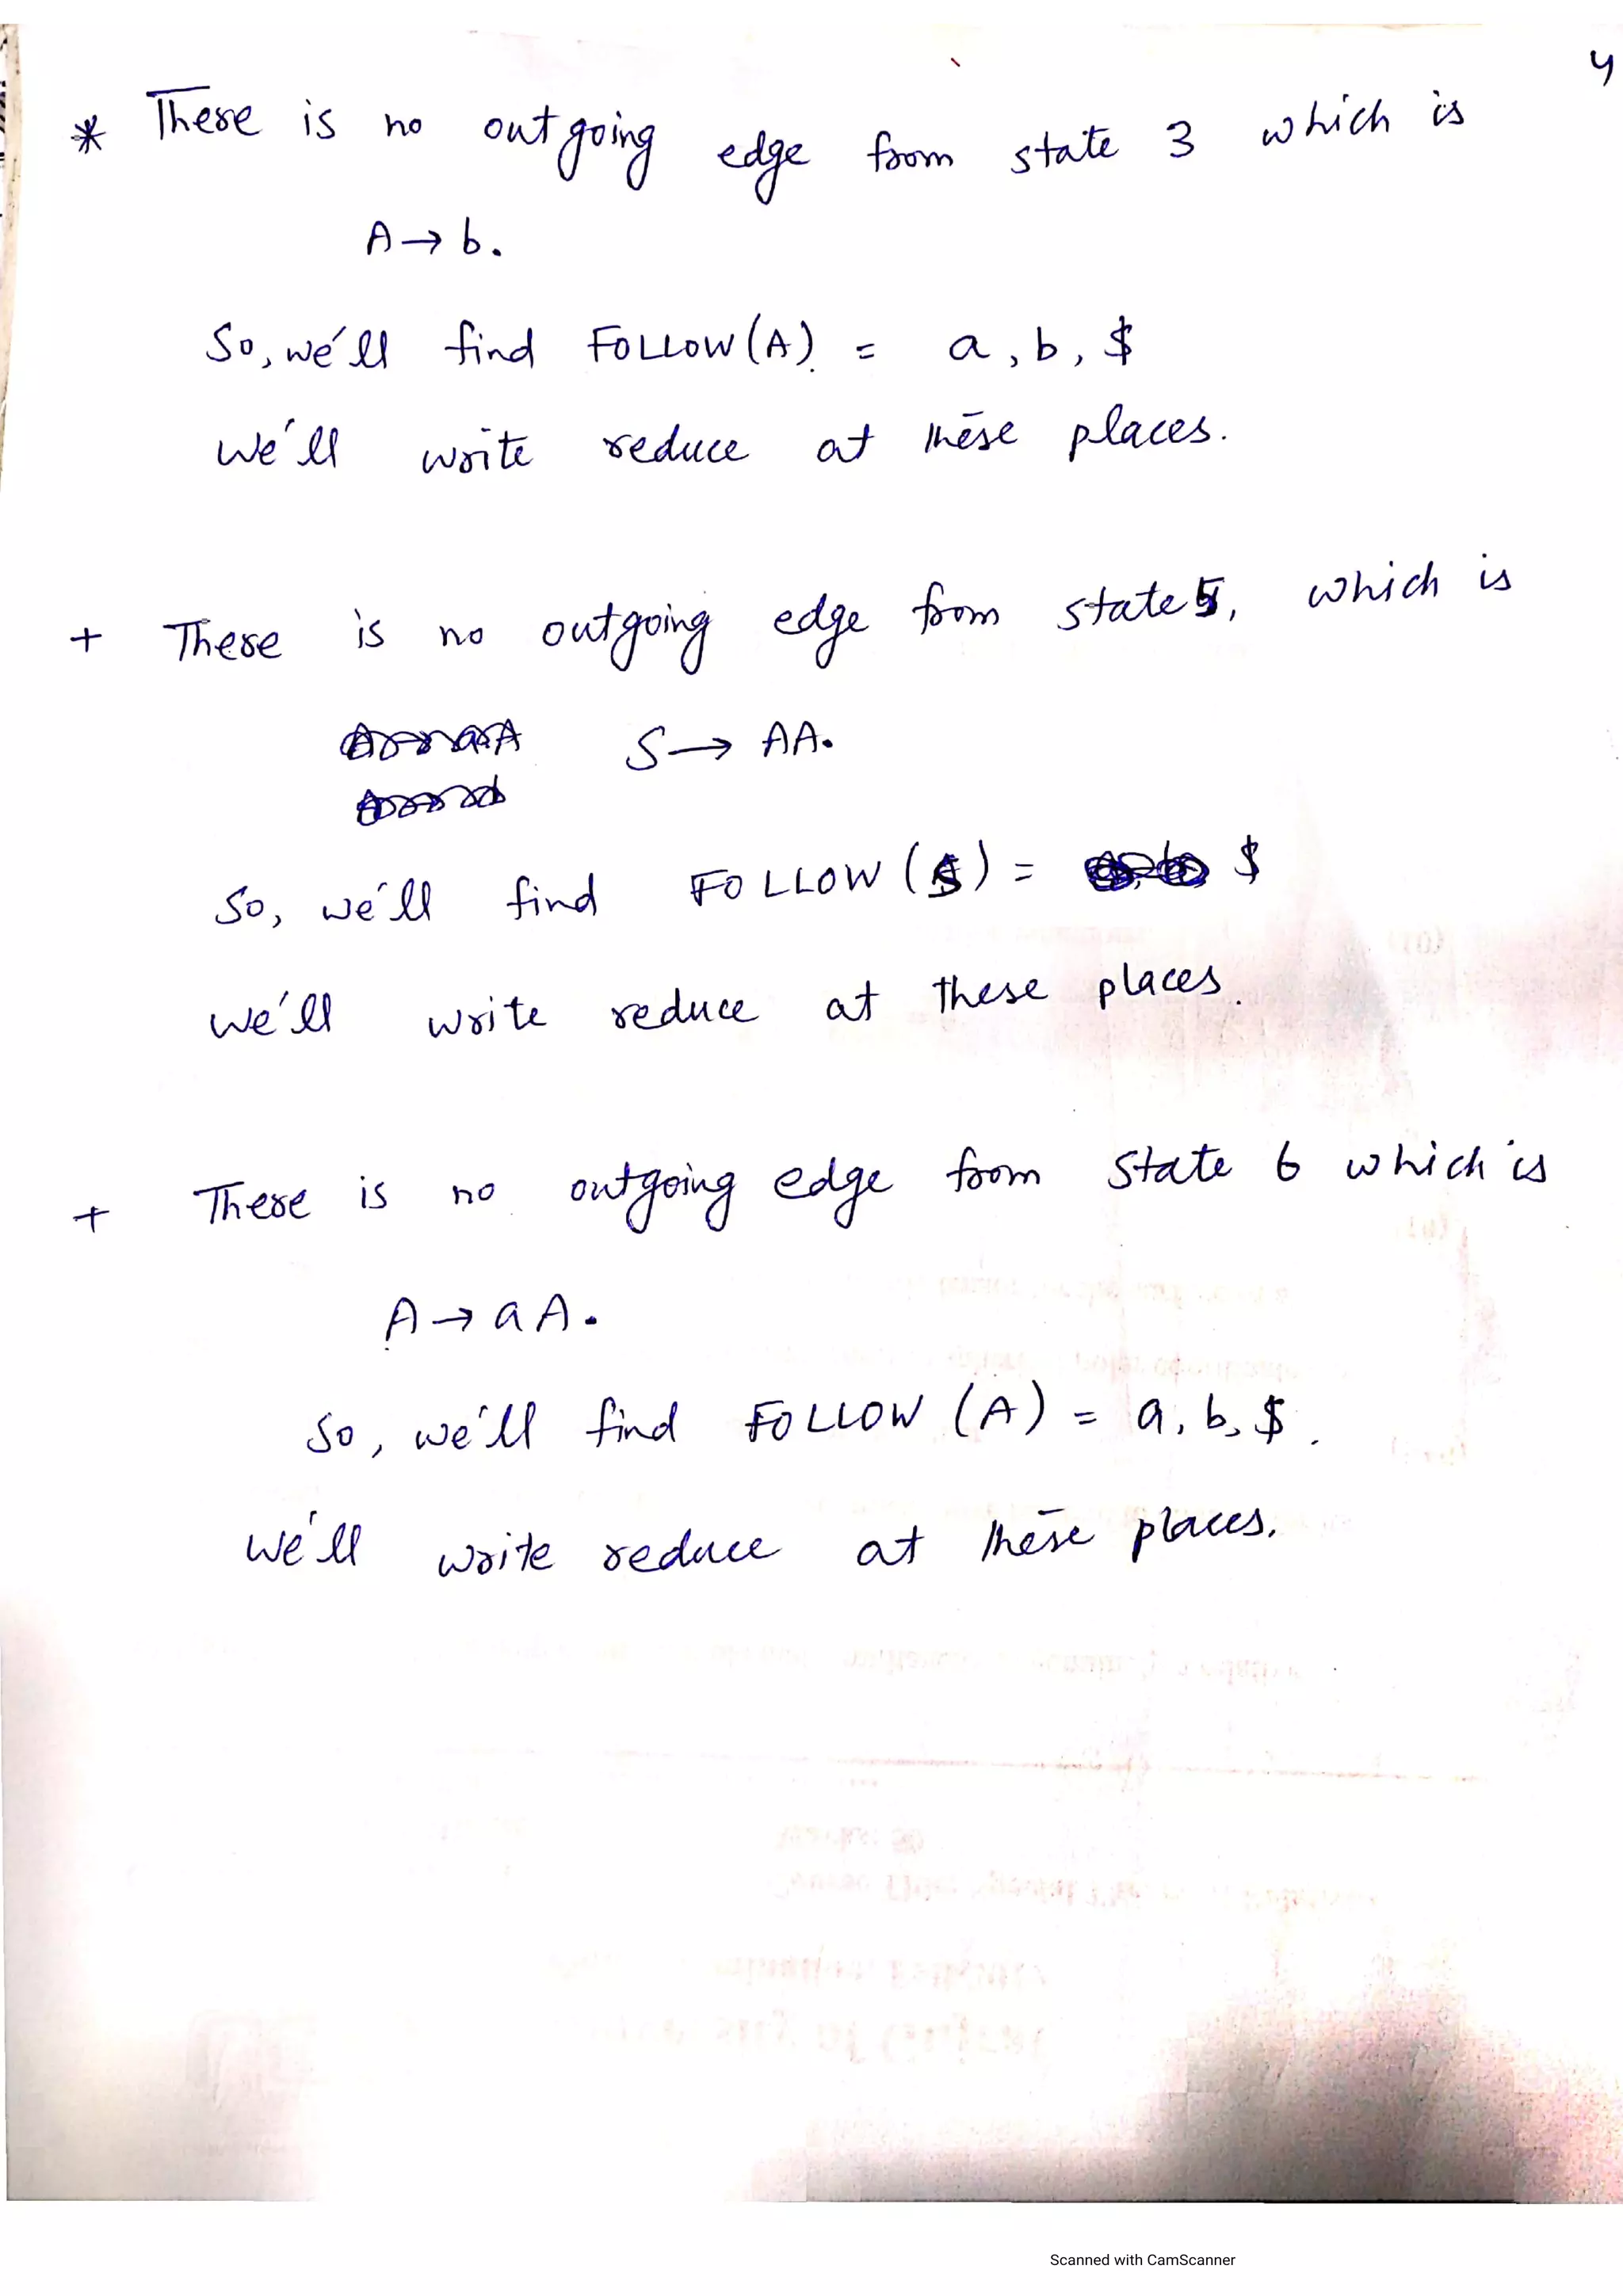 4
* There is no outgoing edge from state 3 which is
A → b.
So, we'll find FOLLOW(A) = a, b, $
We'll write reduce at these places.
+ There is no outgoing edge from state 5, which is
S → AA.
So, we'll find FOLLOW (S) = $
We'll write reduce at these places.
+ There is no outgoing edge from State 6 which is
A → aA.
So, we'll find FOLLOW (A) = a, b, $.
We'll write reduce at these places.
Scanned with CamScanner